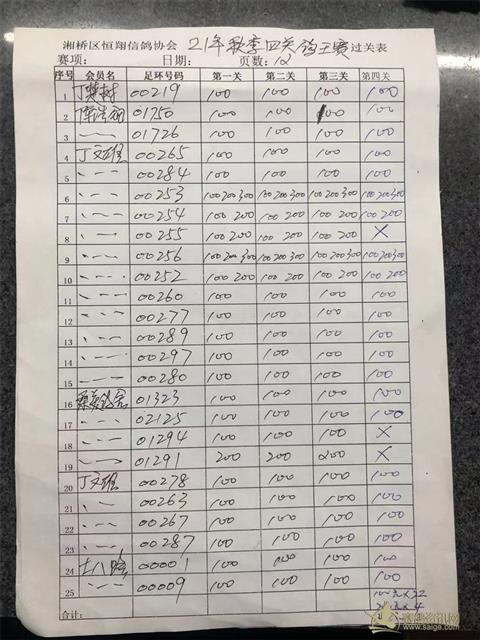 湘桥区恒翔信鸽协会 21年秋季四关鸽王赛过关表
赛项: 日期: 页数: 12
序号 会员名 足环号码 第一关 第二关 第三关 第四关
1 00219 100 100 100 100
2 01750 100 100 100 100
3 〃 01726 100 100 100 100
4 丁文雄 00265 100 100 100 100
5 〃 00284 100 100 100 100
6 〃 00253 100 200 300 100 200 300 100 200 300 100 200 300
7 〃 00254 100 200 100 200 100 200 100 200
8 〃 00255 100 200 100 200 100 200 ×
9 〃 00256 100 200 300 100 200 300 100 200 300 100 200 300
10 〃 00252 100 200 100 200 100 200 100 200
11 〃 00260 100 100 100 100
12 〃 00277 100 100 100 100
13 〃 00289 100 100 100 100
14 〃 00297 100 100 100 100
15 〃 00280 100 100 100 100
16 01323 100 100 100 100
17 〃 02125 100 100 100 100
18 〃 01294 100 100 100 ×
19 〃 01291 200 200 200 ×
20 丁文雄 00278 100 100 100 100
21 〃 00263 100 100 100 100
22 〃 00267 100 100 100 100
23 〃 00287 100 100 100 100
24 00001 100 100 100 100
25 〃 00009 100 100 100 100
合计:
www.saige.com